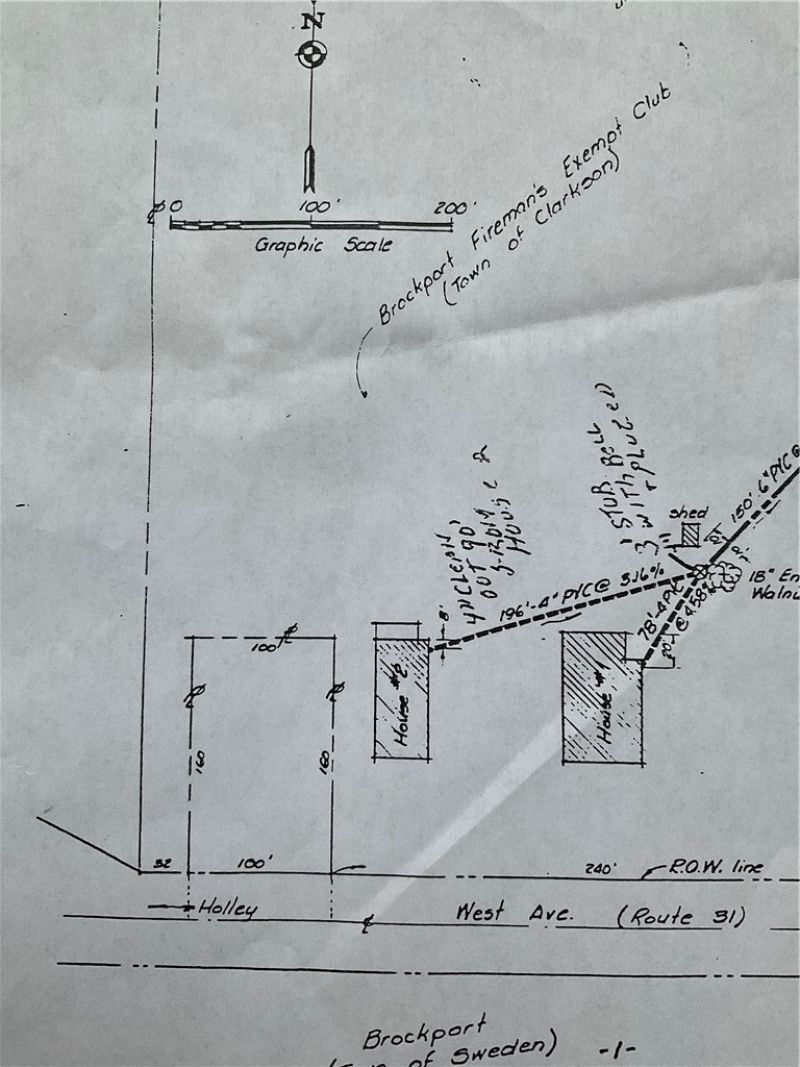 N
0 100' 200'
Graphic Scale
Brockport Fireman's Exempt Club
(Town of Clarkson)
1 STUB BELL
WITH PLUG
shed
150'-6" PVC @
18" En
Walnu
HOUSE 2
OUT 90'
8'
196'-4" PVC @ 3.16%
78'-4 PVC
@ 4.58%
20'
100'
House #2
House #1
160
160
52
100'
240'
R.O.W. line
Holley
West Ave. (Route 31)
Brockport
of Sweden)
-1-